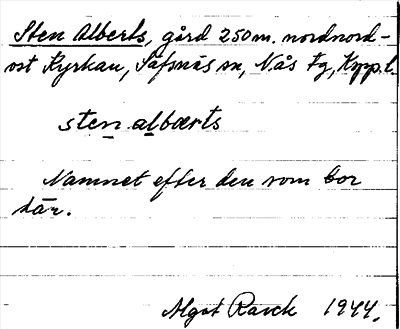 Sten Alberts, gård 250 m. nordnord-
ost Kyrkan, Säfsnäs sn, Nås tg, Kopp. l.
sten albærts
Namnet efter den som bor
där.
Algot Ravck 1944.